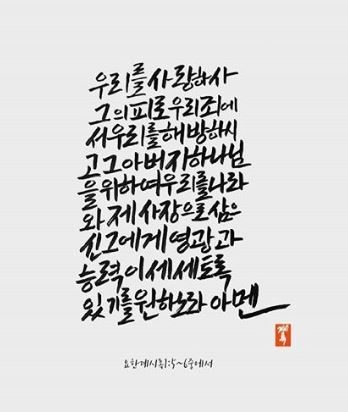 우리를 사랑하사
그의 피로 우리 죄에
서 우리를 해방하시
고 그 아버지 하나님
을 위하여 우리를 나라
와 제사장으로 삼으
신 그에게 영광과
능력이 세세토록
있기를 원하노라 아멘
요한계시록1:5~6중에서